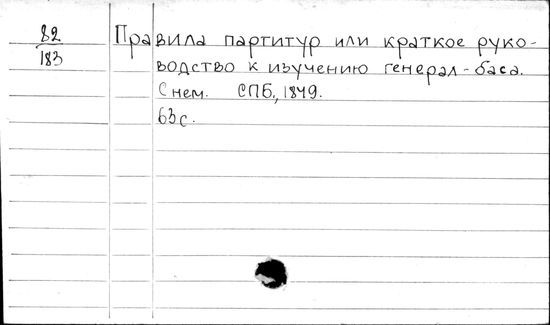 82
183
Правила партитур или краткое руко-
водство к изучению генерал-баса.
С нем. СПб., 1849.
63 с.